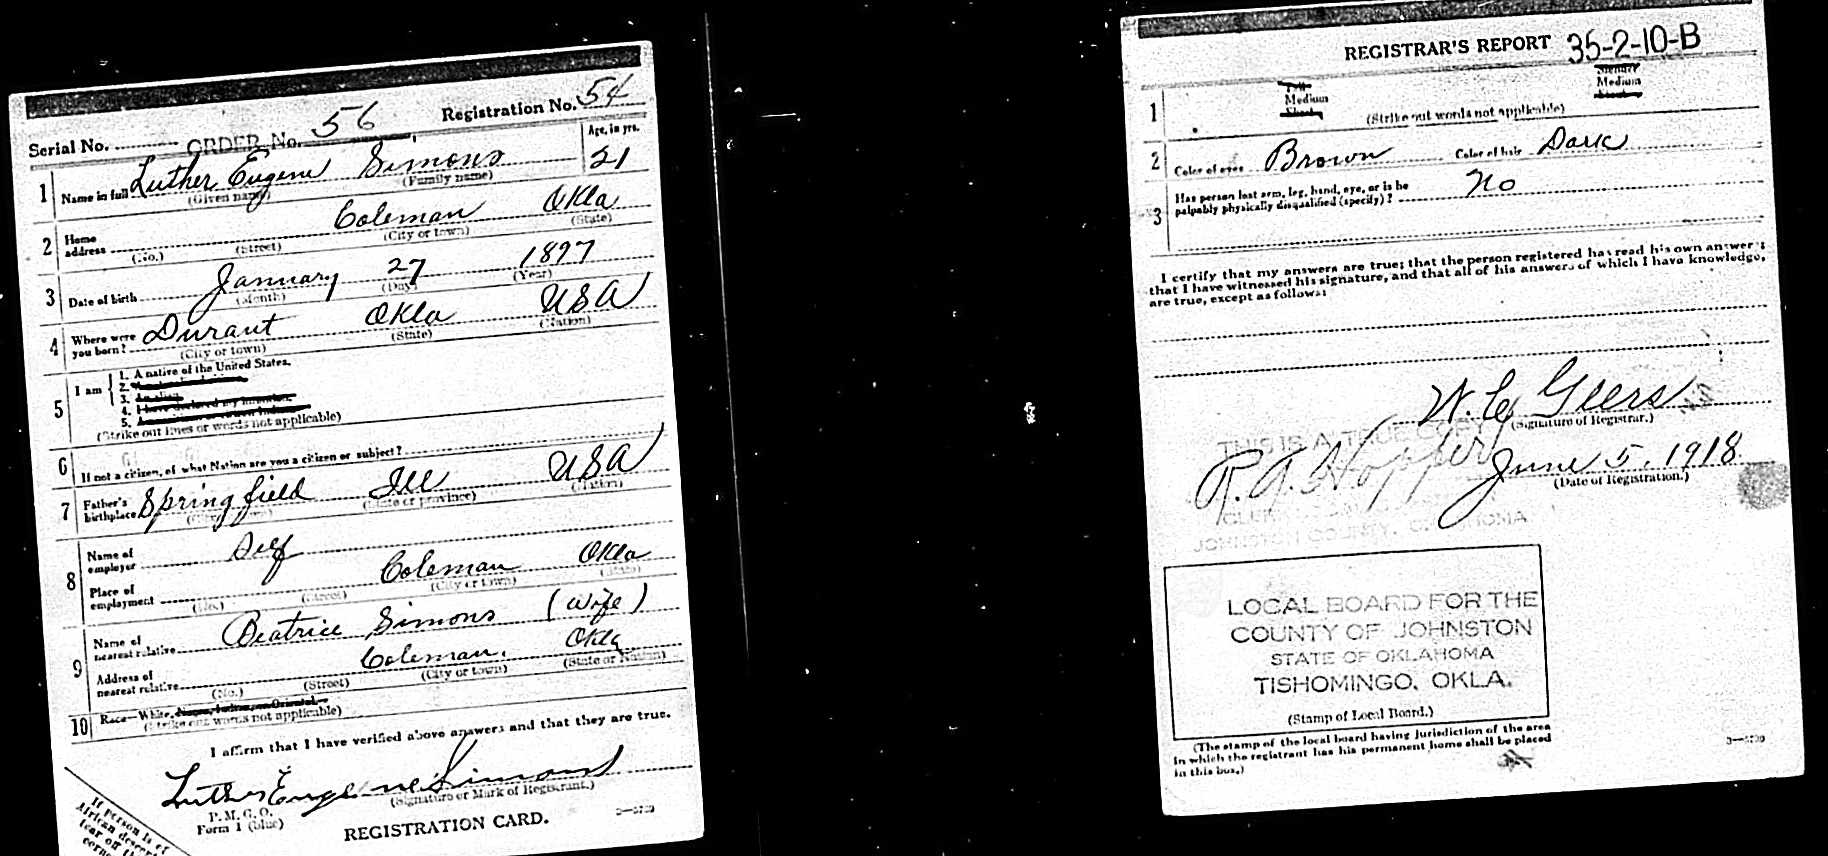 Serial No. ORDER No. 56 Registration No. 54
1 Name in full Luther Eugene Simons Age, in yrs. 21
(Given name) (Family name)
2 Home address Coleman Okla
(No.) (Street) (City or town) (State)
3 Date of birth January 27 1897
(Month) (Day) (Year)
4 Where were you born? Durant Okla USA
(City or town) (State) (Nation)
5 I am 1. A native of the United States.
2.
3. An alien
4. I have declared my intention
5.
(Strike out lines or words not applicable)
6 If not a citizen, of what Nation are you a citizen or subject?
7 Father's birthplace Springfield Ill USA
(City or town) (State or province) (Nation)
8 Name of employer Self
Place of employment Coleman Okla
(No.) (Street) (City or town) (State)
9 Name of nearest relative Beatrice Simons (wife)
Address of nearest relative Coleman, Okla
(No.) (Street) (City or town) (State or Nation)
10 Race—White, Negro, Indian, or Oriental
(Strike out words not applicable)
I affirm that I have verified above answers and that they are true.
Luther Eugene Simons
(Signature or Mark of Registrant.)
P. M. G. O.
Form 1 (blue)
REGISTRATION CARD.
If person is of
African descent
tear off
corner
REGISTRAR'S REPORT 35-2-10-B
1 Tall Slender
Medium Medium
Short Stout
(Strike out words not applicable)
2 Color of eyes Brown Color of hair Dark
3 Has person lost arm, leg, hand, eye, or is he
palpably physically disqualified (specify)? No
I certify that my answers are true; that the person registered has read his own answers;
that I have witnessed his signature, and that all of his answers of which I have knowledge,
are true, except as follows:
W. C. Geers
(Signature of Registrar.)
THIS IS A TRUE COPY
R. A. Hopper
June 5, 1918
(Date of Registration.)
CLERK
JOHNSTON COUNTY, OKLAHOMA
LOCAL BOARD FOR THE
COUNTY OF JOHNSTON
STATE OF OKLAHOMA
TISHOMINGO, OKLA.
(Stamp of Local Board.)
(The stamp of the local board having jurisdiction of the area
in which the registrant has his permanent home shall be placed
in this box.)